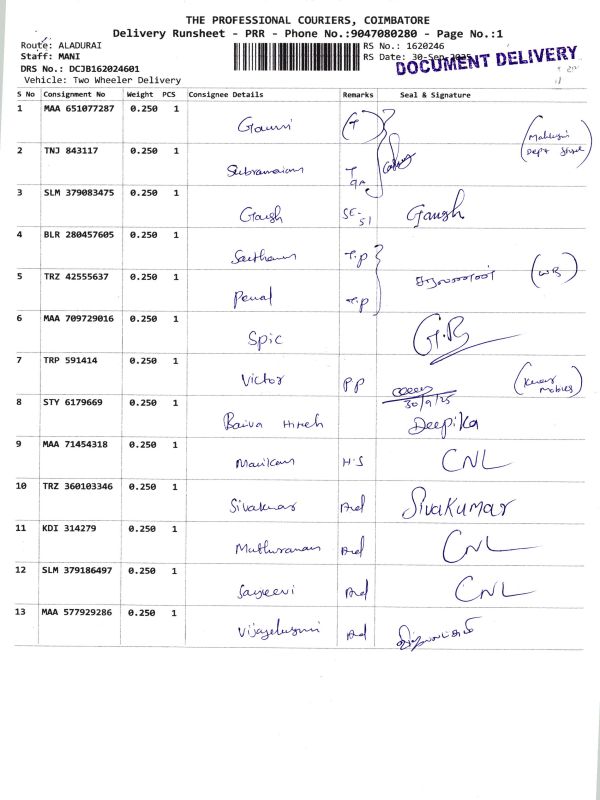 THE PROFESSIONAL COURIERS, COIMBATORE
Delivery Runsheet - PRR - Phone No.:9047080280 - Page No.:1
Route: ALADURAI RS No.: 1620246
Staff: MANI RS Date: 30-Sep-2025
DOCUMENT DELIVERY
DRS No.: DCJB162024601
Vehicle: Two Wheeler Delivery
S No Consignment No Weight PCS Consignee Details Remarks Seal & Signature
1 MAA 651077287 0.250 1 Gowri (T
2 TNJ 843117 0.250 1 Subramaiam T
3 SLM 379083475 0.250 1 Gaush SE-51 Gaush
4 BLR 280457605 0.250 1 T.P
5 TRZ 42555637 0.250 1 Penal T.P சரவணன் (WB)
6 MAA 709729016 0.250 1 Spic G.B
7 TRP 591414 0.250 1 Victor PP
30/9/25
8 STY 6179669 0.250 1 Baiva Hitesh Deepika
9 MAA 71454318 0.250 1 Manikam H.S CNL
10 TRZ 360103346 0.250 1 Sivakumar Ad SivaKumar
11 KDI 314279 0.250 1 Muthuraman Ad CNL
12 SLM 379186497 0.250 1 Sajeevi Ad CNL
13 MAA 577929286 0.250 1 Vijayelusumi Ad